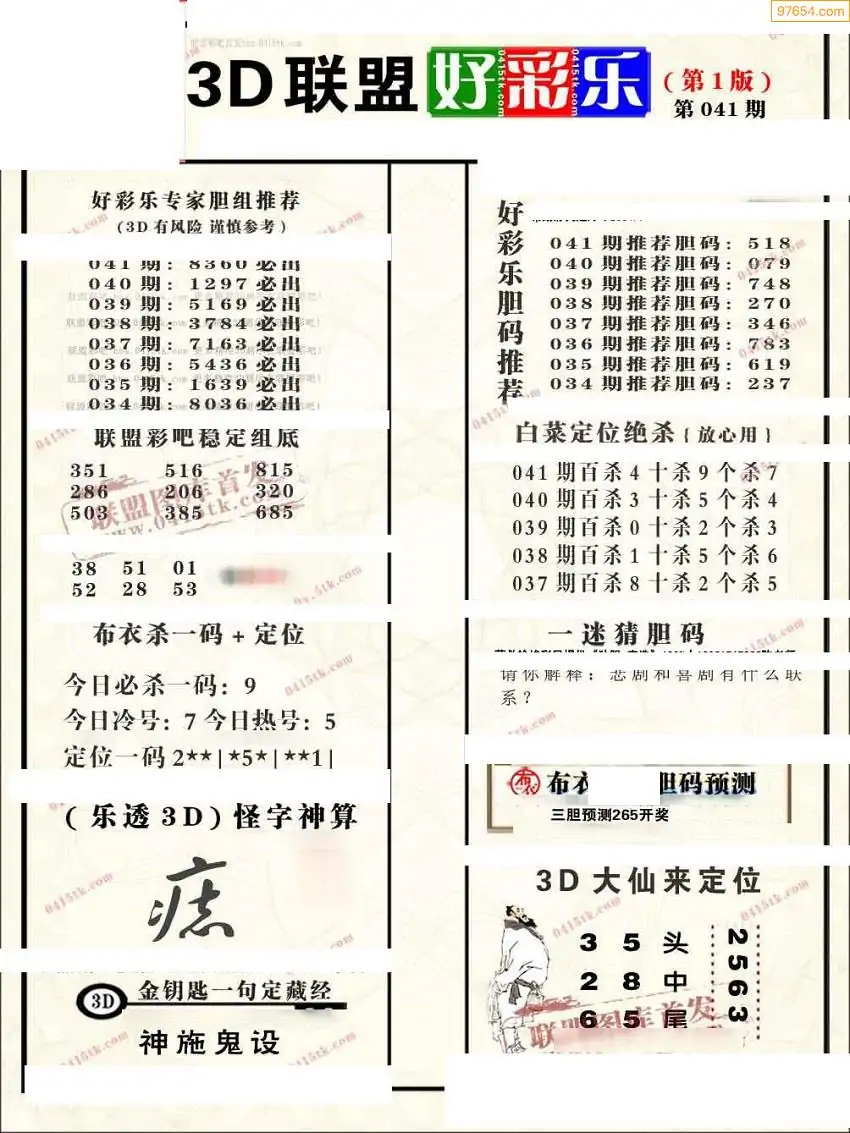 97654.com
3D联盟好彩乐(第1版)
第041期
好彩乐专家胆组推荐
(3D有风险 谨慎参考)
041期:8360必出
040期:1297必出
039期:5169必出
038期:3784必出
037期:7163必出
036期:5436必出
035期:1639必出
034期:8036必出
联盟彩吧稳定组底
351 516 815
286 206 320
503 385 685
联盟图库首发
www.0415tk.com
38 51 01
52 28 53
布衣杀一码+定位
今日必杀一码:9
今日冷号:7 今日热号:5
定位一码2**|*5*|**1|
(乐透3D)怪字神算
痣
3D 金钥匙一句定藏经
神施鬼设
好彩乐胆码推荐
041期推荐胆码:518
040期推荐胆码:079
039期推荐胆码:748
038期推荐胆码:270
037期推荐胆码:346
036期推荐胆码:783
035期推荐胆码:619
034期推荐胆码:237
白菜定位绝杀{放心用}
041期百杀4十杀9个杀7
040期百杀3十杀5个杀4
039期百杀0十杀2个杀3
038期百杀1十杀5个杀6
037期百杀8十杀2个杀5
一迷猜胆码
请你解释:悲剧和喜剧有什么联
系?
布衣 胆码预测
三胆预测265开奖
3D大仙来定位
3 5 头
2 8 中
6 5 尾
2563
联盟图库首发
0415tk.com